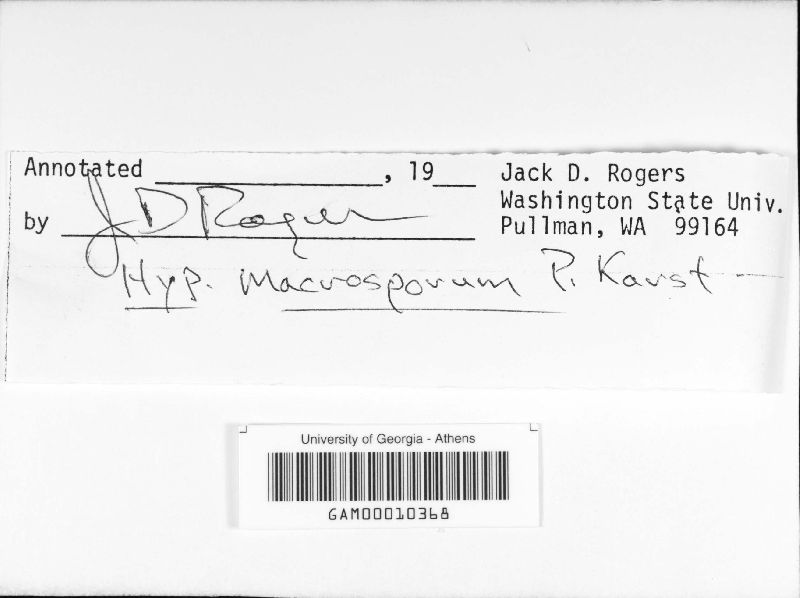 Annotated ________________, 19___ Jack D. Rogers
Washington State Univ.
by JD Rogers Pullman, WA 99164
Hyp. macrosporum P. Karst
University of Georgia - Athens
GAM00010368